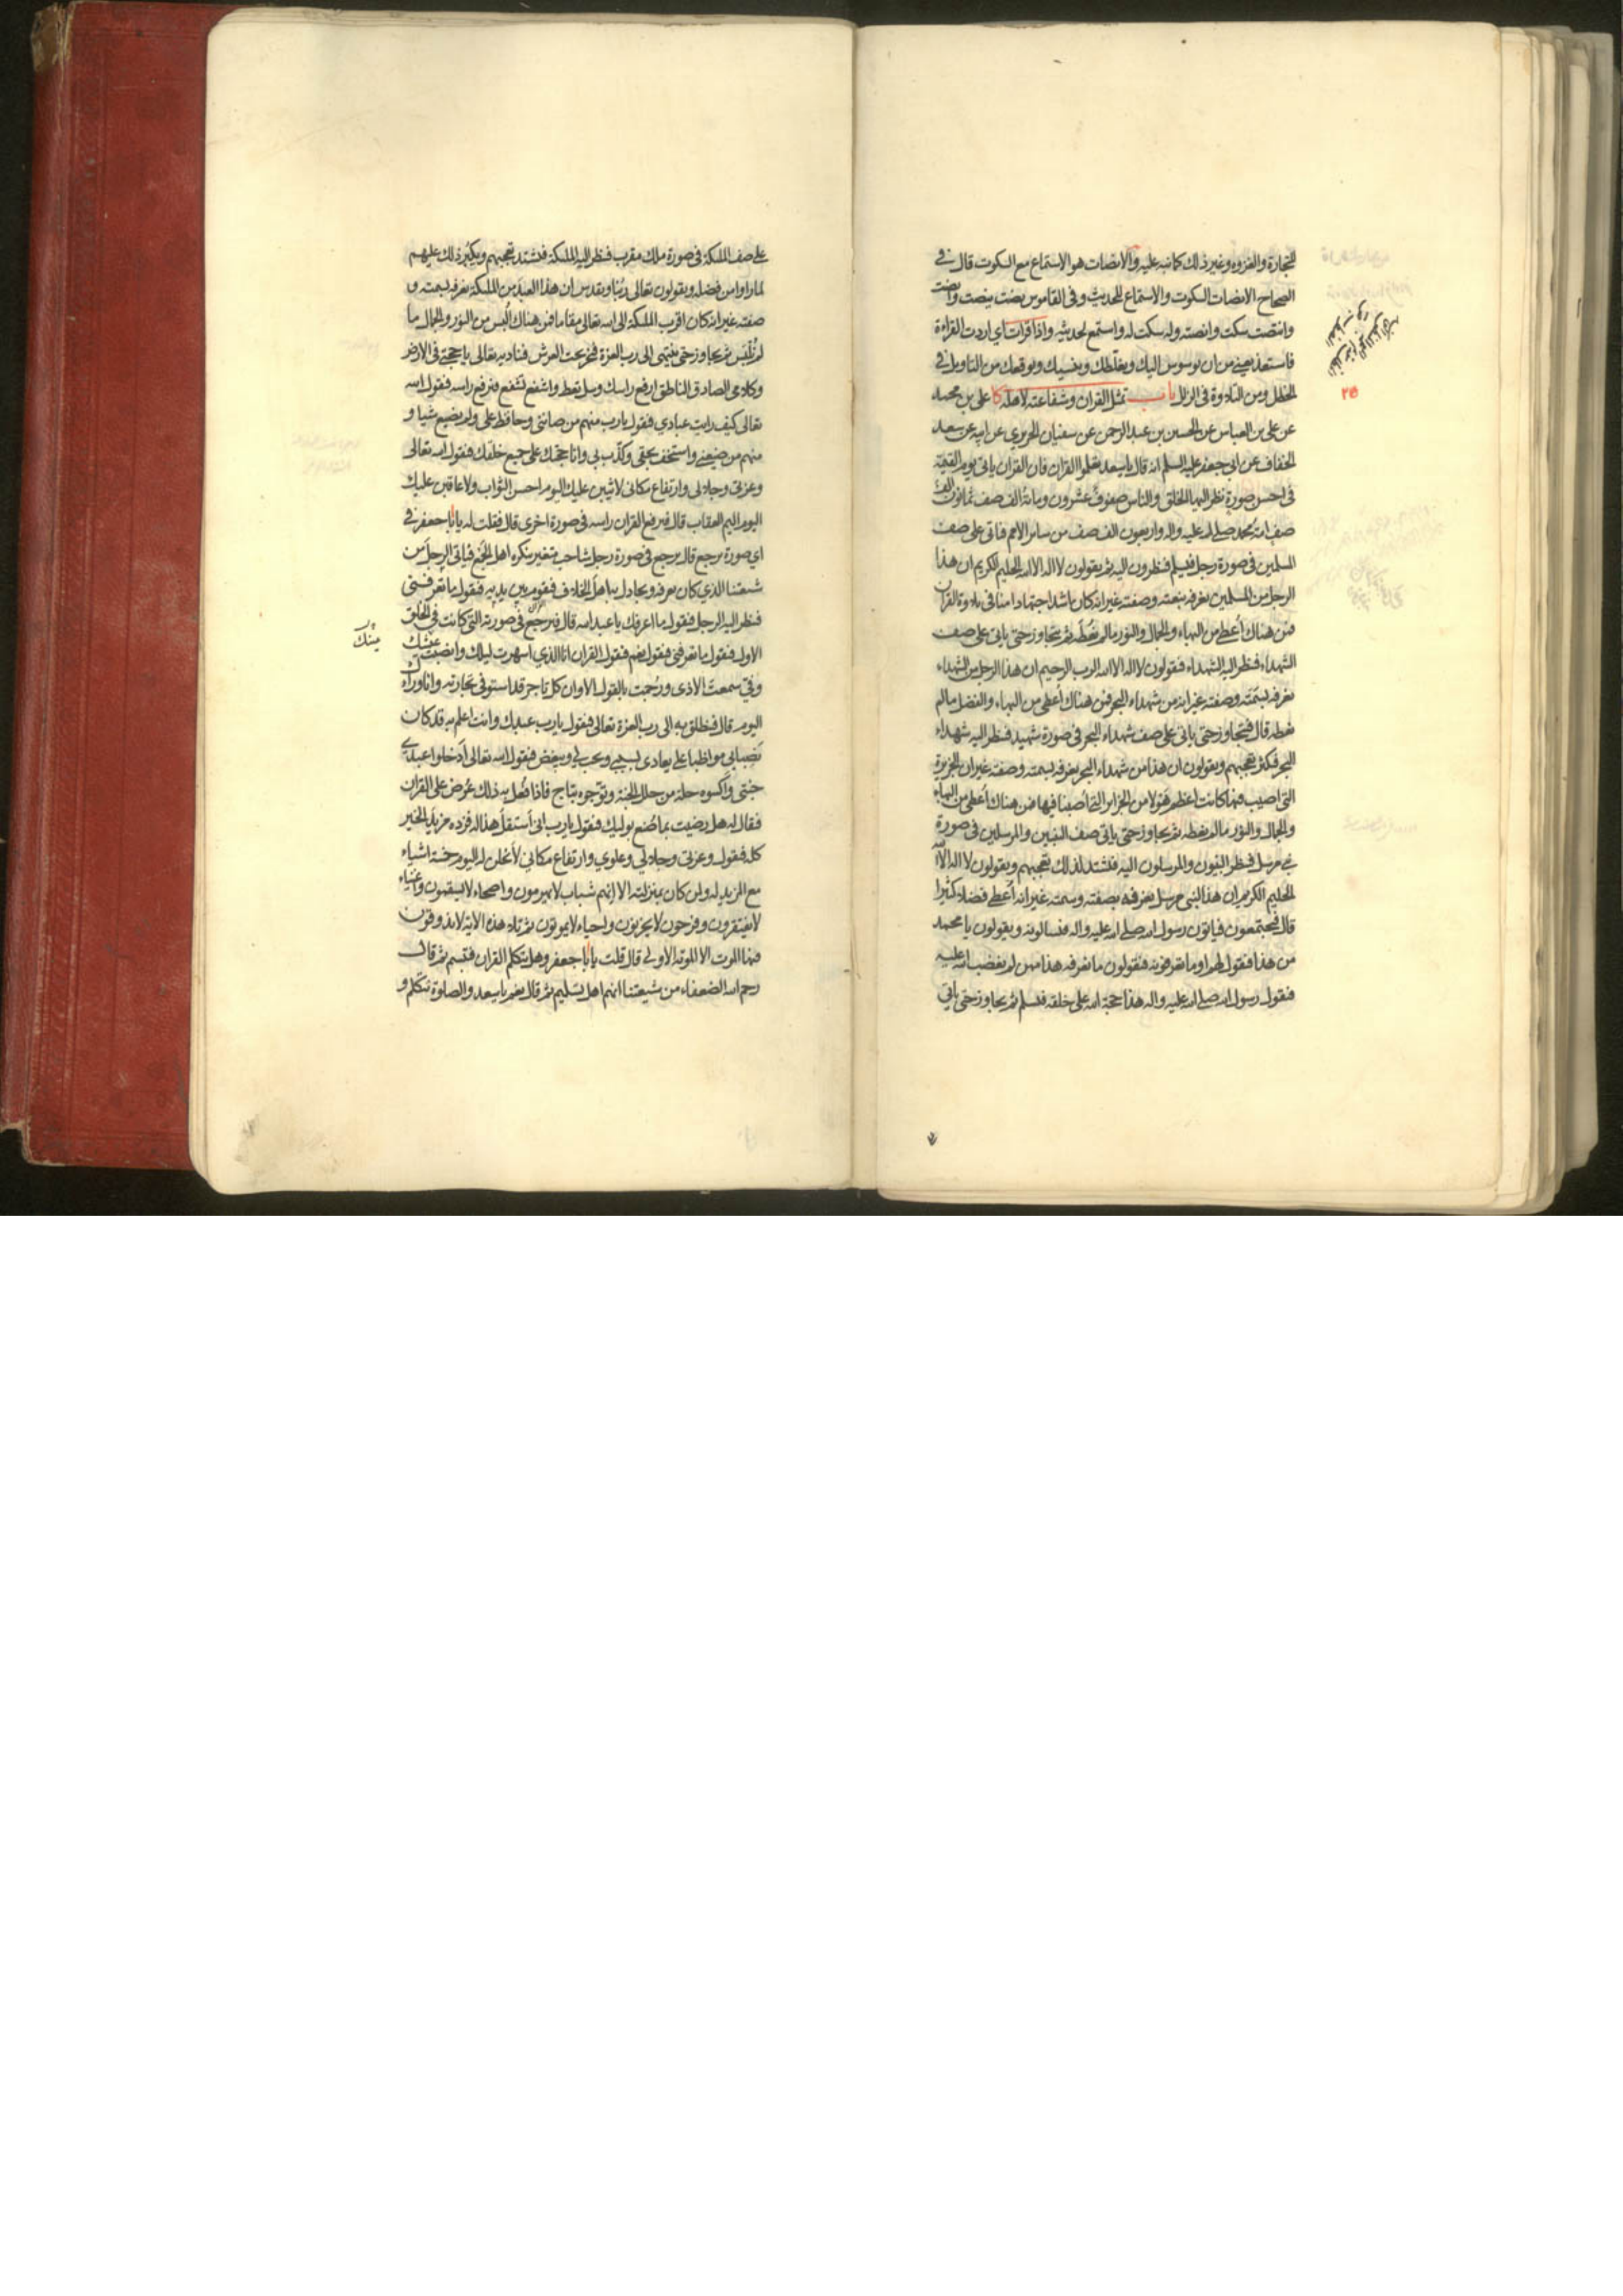 للتجارة والغزوه وغير ذلك كما نبه عليه والانصات هو الاستماع مع السكوت قال في
الصحاح الانصات السكوت والاستماع للحديث وفى القاموس نصت ينصت وانصت
وانتصت سكت وانصته وله سكت له واستمع لحديثه واذا قرات اي اردت القراءة
فاستعذ يعني من ان يوسوس اليك ويغلطك وينسيك ويوقعك من التاويل في
الخطل ومن التلاوة فى الزلل باب تمثل القران وشفاعته لاهله كا على بن محمد
عن على بن العباس عن الحسين بن عبد الرحمن عن سفيان الحريري عن ابيه عن سعد
الخفاف عن ابي جعفر عليه السلم انه قال يا سعد تعلموا القران فان القران ياتي يوم القيمة
فى احسن صورة نظر اليها الخلق والناس صفوف عشرون وماية الف صف ثمانون الف
صف امة محمد صلى الله عليه واله واربعون الف صف من ساير الامم فياتى على صف
المسلمين فى صورة رجل فيسلم فينظرون اليه ثم يقولون لا اله الا الله الحليم الكريم ان هذا
الرجل من المسلمين نعرفه بنعته وصفته غير انه كان اشد اجتهادا منا فى تلاوة القران
فمن هناك أعطي من البهاء والجمال والنور ما لم نعطه ثم يتجاوز حتى ياتى على صف
الشهداء فينظر اليه الشهداء فيقولون لا اله الا الله الرب الرحيم ان هذا الرجل من الشهداء
نعرفه بسمته وصفته غير انه من شهداء البحر فمن هناك أعطي من البهاء والفضل ما لم
نعطه قال فيتجاوز حتى ياتى على صف شهداء البحر فى صورة شهيد فينظر اليه شهداء
البحر فيكثر تعجبهم ويقولون ان هذا من شهداء البحر نعرفه بسمته وصفته غير ان الجزيرة
التى اصيب فيها كانت اعظم هولا من الجزاير التى أصبنا فيها فمن هناك أعطي من البهاء
والجمال والنور ما لم نعطه ثم يجاوز حتى ياتى صف النبيين والمرسلين فى صورة
نبي مرسل فينظر النبيون والمرسلون اليه فيشتد لذلك تعجبهم ويقولون لا اله الا الله
الحليم الكريم ان هذا لنبي مرسل نعرفه بصفته وسمته غير انه أعطي فضلا كثيرا
قال فيجتمعون فياتون رسول الله صلى الله عليه واله فيسالونه ويقولون يا محمد
من هذا فيقول لهم او ما تعرفونه فيقولون ما نعرفه هذا ممن لم يغضب الله عليه
فيقول رسول الله صلى الله عليه واله هذا حجة الله على خلقه فيسلم ثم يجاوز حتى ياتي
٢٥
على صف الملئكة فى صورة ملك مقرب فينظر اليه الملئكة فيشتد تعجبهم ويكبر ذلك عليهم
لما راوا من فضله ويقولون تعالى ربنا وتقدس ان هذا العبد من الملئكة نعرفه بسمته و
صفته غير انه كان اقرب الملئكة الى الله تعالى مقاما فمن هناك ألبس من النور والجمال ما
لم نلبس ثم يجاوز حتى ينتهى الى رب العزة فيخر تحت العرش فيناديه تعالى يا حجتي فى الارض
وكلامى الصادق الناطق ارفع راسك وسل تعط واشفع تشفع فيرفع راسه فيقول الله
تعالى كيف رايت عبادي فيقول يا رب منهم من صاننى وحافظ على ولم يضيع شيئا و
منهم من ضيعني واستخف بحقى وكذب بي وانا حجتك على جميع خلقك فيقول الله تعالى
وعزتى وجلالى وارتفاع مكانى لاثيبن عليك اليوم احسن الثواب ولاعاقبن عليك
اليوم اليم العقاب قال فيرفع القران راسه فى صورة اخرى قال فقلت له يا ابا جعفر في
اي صورة يرجع قال يرجع فى صورة رجل شاحب متغير ينكره اهل الجمع فياتى الرجل من
شيعتنا الذي كان يعرفه ويجادل به اهل الخلاف فيقوم بين يديه فيقول ما تعرفني
فينظر اليه الرجل فيقول ما اعرفك يا عبد الله قال فيرجع فى صورته التى كانت في الخلق
الاول فيقول ما تعرفنى فيقول نعم فيقول القران انا الذي اسهرت ليلك وانصبت عيشك
وفي سمعت الاذى ورجمت بالقول الا وان كل تاجر قد استوفى تجارته وانا وراءك
اليوم قال فينطلق به الى رب العزة تعالى فيقول يا رب عبدك وانت اعلم به قد كان
نصبا بى مواظبا علي يعادى بسببي ويحب في ويبغض فيقول الله تعالى ادخلوا عبدي
جنتى واكسوه حلة من حلل الجنة وتوجوه بتاج فاذا فعل به ذلك عرض على القران
فقال له هل رضيت بما صنع بوليك فيقول يا رب انى أستقل هذا له فزده مزيد الخير
كله فيقول وعزتى وجلالى وعلوي وارتفاع مكاني لأنحلن له اليوم خمسة اشياء
مع المزيد له ولمن كان بمنزلته الا انهم شباب لا يهرمون واصحاء لا يسقمون واغنياء
لا يفتقرون وفرحون لا يحزنون واحياء لا يموتون ثم تلا هذه الاية لا يذوقون
فيها الموت الا الموتة الاولى قال قلت يا ابا جعفر وهل يتكلم القران فتبسم ثم قال
رحم الله الضعفاء من شيعتنا انهم اهل تسليم ثم قال نعم يا سعد والصلوة تتكلم و